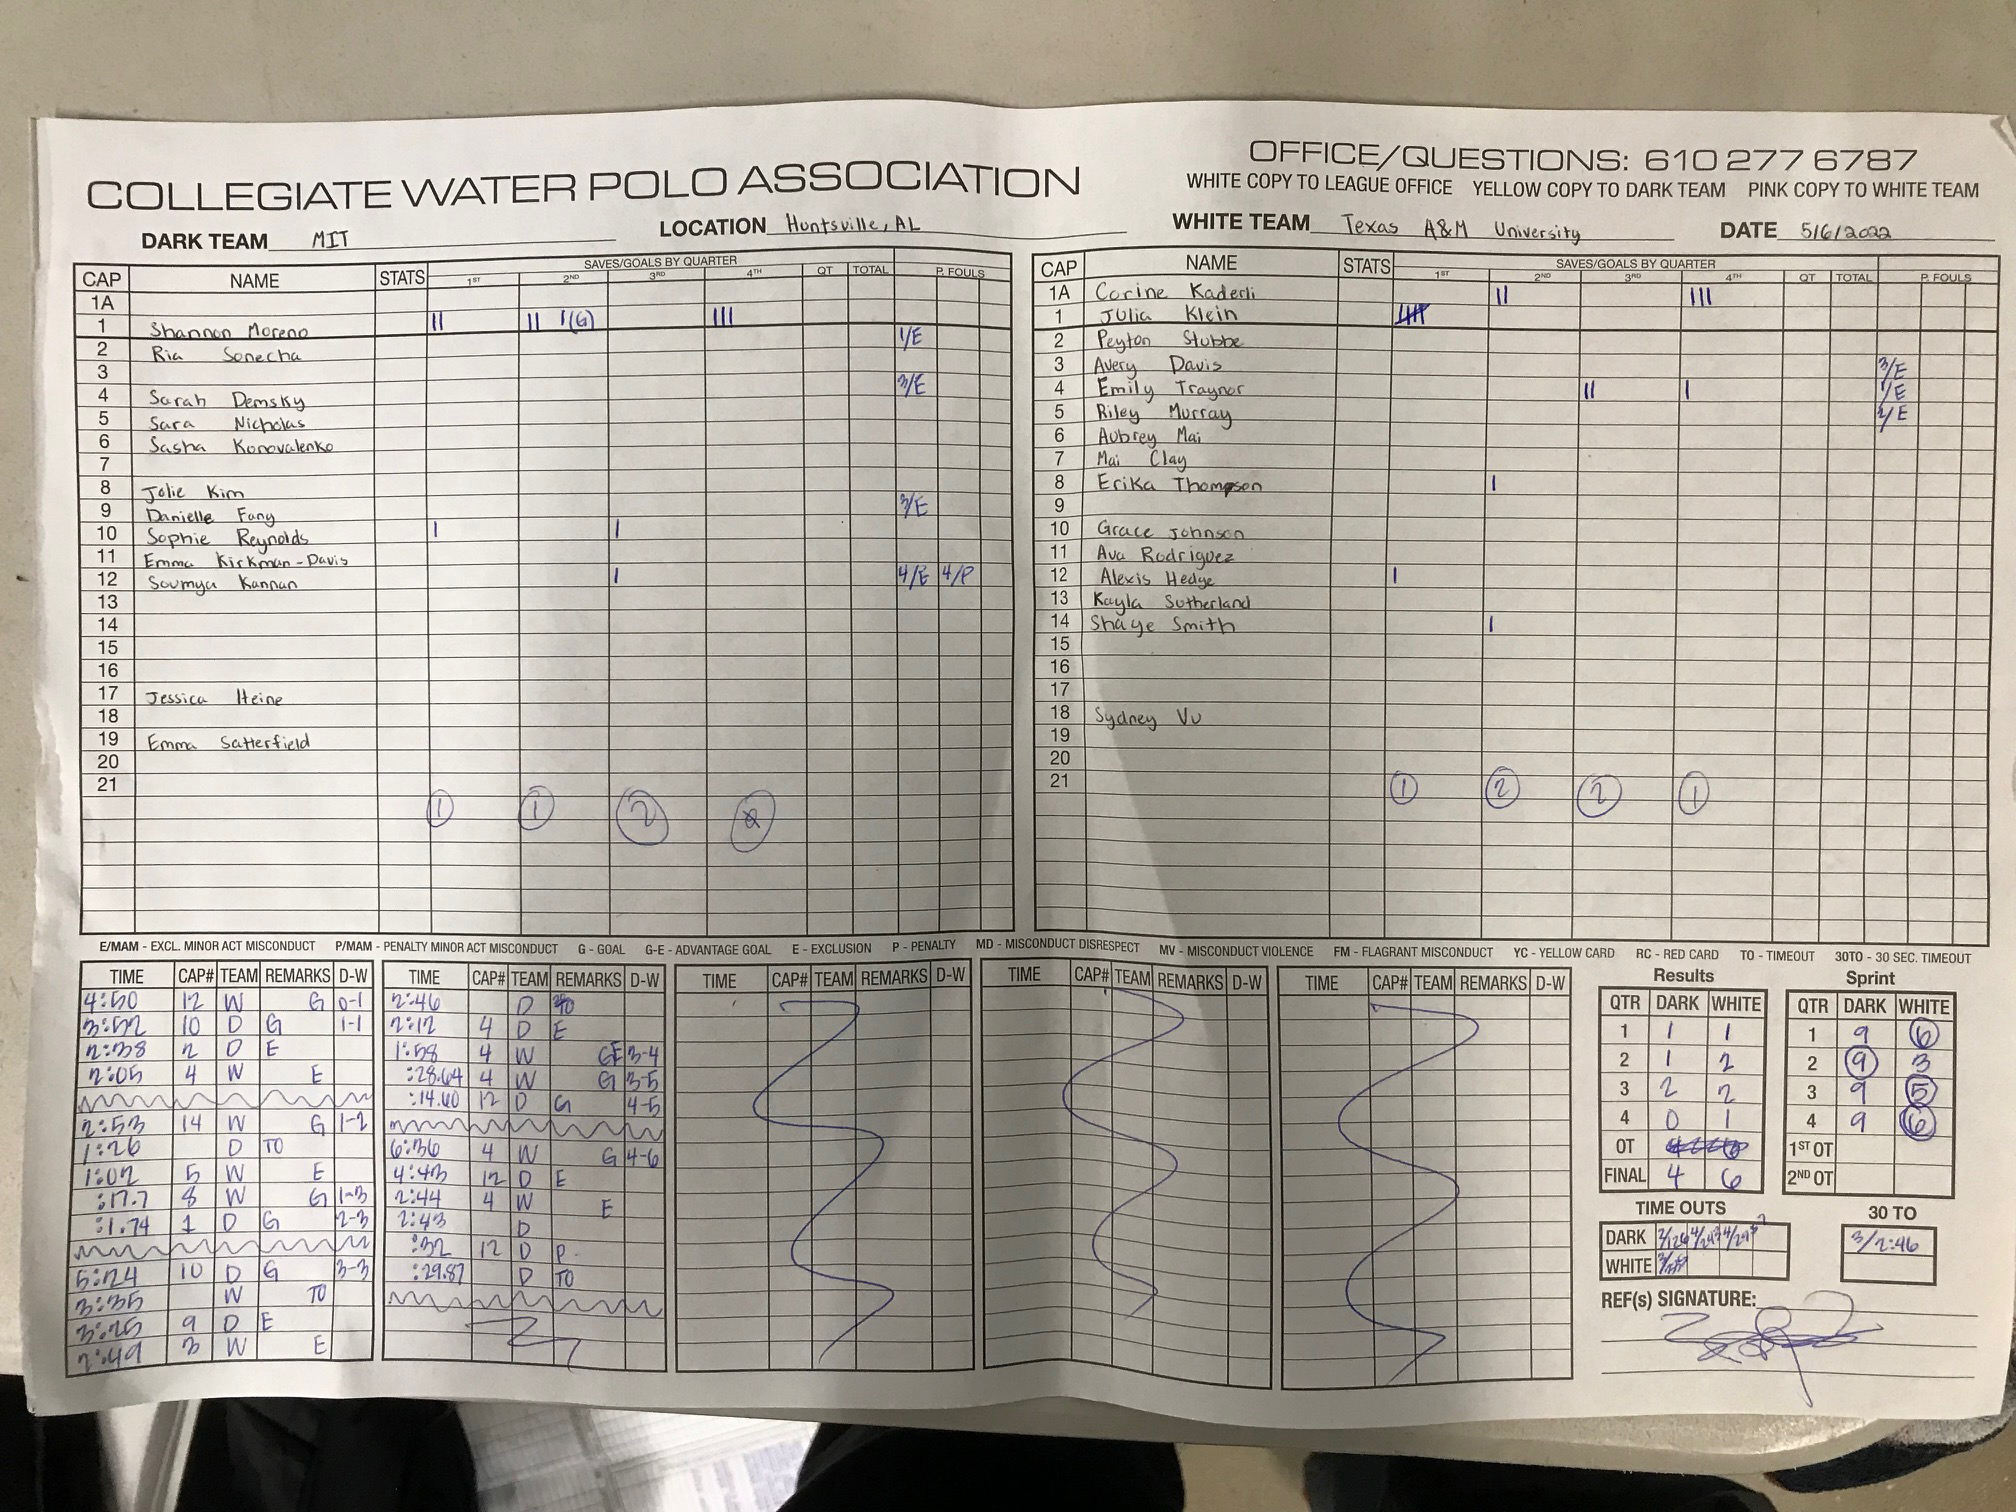 COLLEGIATE WATER POLO ASSOCIATION
OFFICE/QUESTIONS: 610 277 6787
WHITE COPY TO LEAGUE OFFICE YELLOW COPY TO DARK TEAM PINK COPY TO WHITE TEAM
DARK TEAM MIT LOCATION Huntsville, AL WHITE TEAM Texas A&M University DATE 5/6/2022
CAP NAME STATS SAVES/GOALS BY QUARTER
1ST 2ND 3RD 4TH QT TOTAL P. FOULS
1A
1 Shannon Moreno II II I(G) III
2 Ria Sonecha 1/E
3
4 Sarah Demsky 3/E
5 Sara Nicholas
6 Sasha Konovalenko
7
8 Jolie Kim
9 Danielle Fang 3/E
10 Sophie Reynolds I I
11 Emma Kirkman-Davis
12 Soumya Kannan I 4/E 4/P
13
14
15
16
17 Jessica Heine
18
19 Emma Satterfield
20
21
1 1 2
CAP NAME STATS SAVES/GOALS BY QUARTER
1ST 2ND 3RD 4TH QT TOTAL P. FOULS
1A Corine Kaderli II III
1 Julia Klein
2 Peyton Stubbe
3 Avery Davis 3/E
4 Emily Traynor II I 1/E
5 Riley Murray 2/E
6 Aubrey Mai
7 Mai Clay
8 Erika Thompson I
9
10 Grace Johnson
11 Ava Rodriguez
12 Alexis Hedge I
13 Kayla Sutherland
14 Shaye Smith I
15
16
17
18 Sydney Vu
19
20
21
1 2 2 1
E/MAM - EXCL. MINOR ACT MISCONDUCT P/MAM - PENALTY MINOR ACT MISCONDUCT G - GOAL G-E - ADVANTAGE GOAL E - EXCLUSION P - PENALTY MD - MISCONDUCT DISRESPECT MV - MISCONDUCT VIOLENCE FM - FLAGRANT MISCONDUCT YC - YELLOW CARD RC - RED CARD TO - TIMEOUT 30TO - 30 SEC. TIMEOUT
TIME CAP# TEAM REMARKS D-W
4:50 12 W G 0-1
3:52 10 D G 1-1
2:38 2 D E
2:05 4 W E
2:53 14 W G 1-2
1:26 D TO
1:02 5 W E
:17.7 8 W G 1-3
:1.74 1 D G 2-3
5:24 10 D G 3-3
3:35 W TO
3:25 9 D E
2:49 3 W E
TIME CAP# TEAM REMARKS D-W
2:46 D
2:12 4 D E
1:58 4 W GE 3-4
:28.64 4 W G 3-5
:14.60 12 D G 4-5
6:36 4 W G 4-6
4:43 12 D E
2:44 4 W E
2:43 D
:32 12 D P
:29.87 D TO
TIME CAP# TEAM REMARKS D-W
TIME CAP# TEAM REMARKS D-W
TIME CAP# TEAM REMARKS D-W
Results
QTR DARK WHITE
1 1 1
2 1 2
3 2 2
4 0 1
OT
FINAL 4 6
Sprint
QTR DARK WHITE
1 9 6
2 9 3
3 9 5
4 9 6
1ST OT
2ND OT
TIME OUTS
DARK
WHITE
30 TO
3/2:46
REF(s) SIGNATURE: